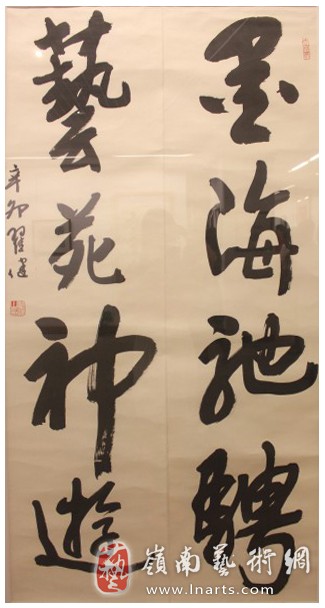 墨海馳騁
藝苑神遊
辛卯 翟健
嶺南藝術網
www.lnarts.com